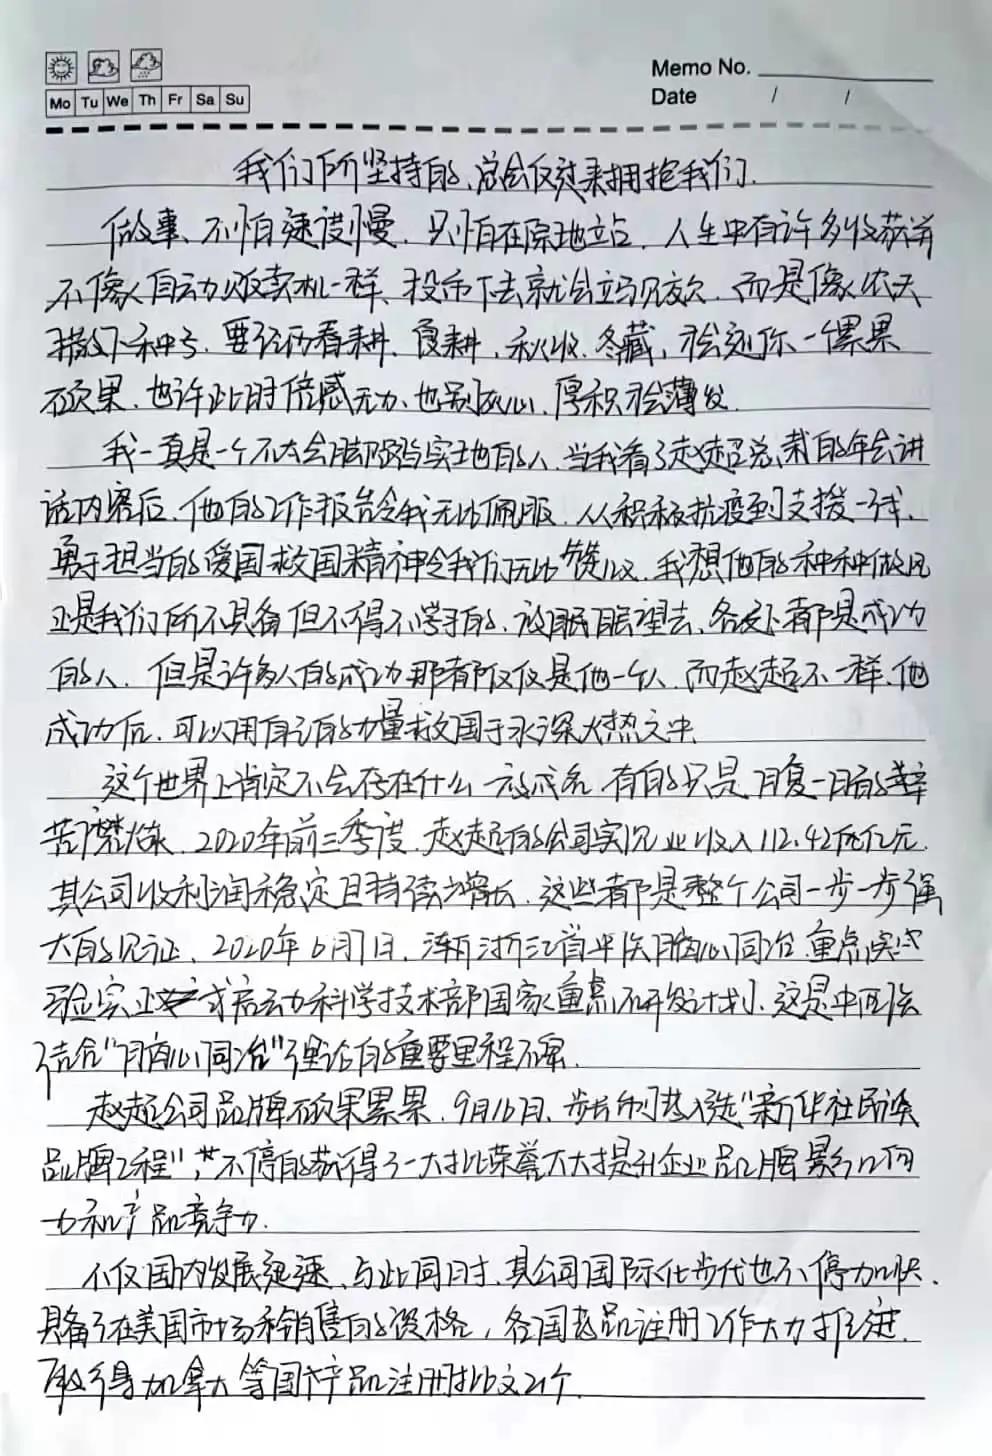 Memo No.
Mo Tu We Th Fr Sa Su
Date / /
我们所坚持的、总会反过来拥抱我们.
做事、不怕速度慢、只怕在原地站、人生中有许多收获并
不像人自动贩卖机一样、投币下去就会立马见效、而是像农夫
撒下种子、要经历春耕、夏耕、秋收、冬藏，才会迎你一个累累
硕果、也许此时倍感无力、也别灰心、厚积才会薄发.
我一直是一个不太会脚踏实地的人、当我看了赵超总裁的年会讲
话内容后、他的工作报告令我无比佩服、从积极抗疫到支援一线、
勇于担当的爱国救国精神令我们无比赞叹、我想他的种种做风
正是我们所不具备但不得不学习的、放眼望去、各处都是成功
的人、但是许多人的成功那都仅仅是他一个人、而赵超不一样、他
成功后、可以用自己的力量救国于水深火热之中.
这个世界上肯定不会存在什么一夜成名、有的只是日复一日的艰辛
苦楚、2020年前三季度、赵超的公司实现业收入112.42亿元、
其公司收利润稳定且持续增长、这些都是整个公司一步一步强
大的见证、2020年6月7日、浙江省 脑心同治 重点实
验室正式启动科学技术部国家重点研发计划、这是中西医
结合"脑心同治"理论的重要里程碑.
赵超公司品牌硕果累累、9月16日、步长制药入选"新华社民族
品牌工程"，并不停的获得了一大批荣誉大大提升企业品牌影响
力和产品竞争力.
不仅国内发展迅速、与此同时、其公司国际化步伐也不停加快、
具备了在美国市场和销售的资格，各国药品注册工作大力推进、
取得加拿大等国产品注册批文21个.